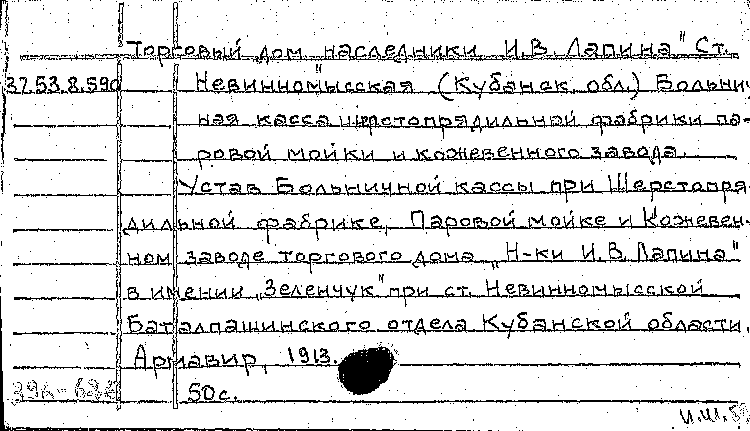 Торговый дом наследники И.В. Лапина" Ст.
37.53.8.590 Невинномысская (Кубанск. обл.) Больнич-
ная касса шерстопрядильной фабрики па-
ровой мойки и кожевенного завода.
Устав Больничной кассы при Шерстопря-
дильной фабрике, Паровой мойке и Кожевен-
ном заводе торгового дома „Н-ки И.В. Лапина"
в имении „Зеленчук" при ст. Невинномысской
Баталпашинского отдела Кубанской области.
Армавир, 1913.
50 с.